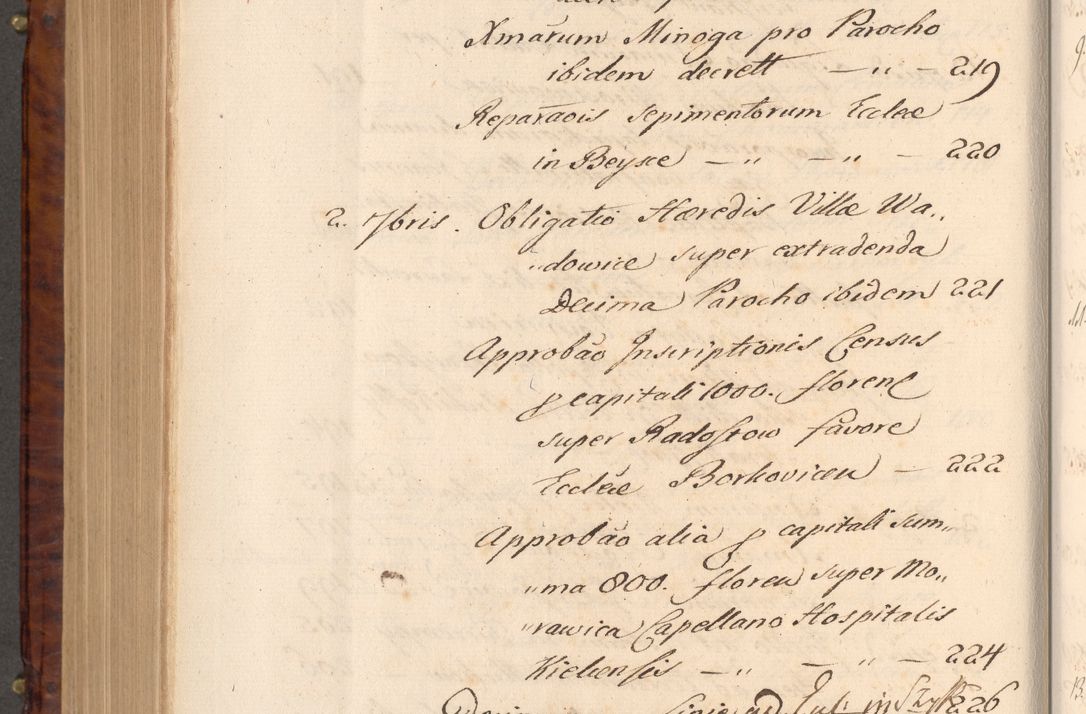 Xmarum Minoga pro Parocho
ibidem decrett — „ — 219
Reparaois sepimentorum Ecclae
in Beysce — „ — „ — 220
2. 7bris. Obligatio Hæredis Villæ Wa„
„dowice super extradenda
Decima Parocho ibidem 221
Approbão Inscriptionis Census
p capitali 1000. floren
super Radostow favore
Ecclae Borkovicen — 222
Approbão alia p capitali sum„
„ma 800. floren super Mo„
„rawica Capellano Hospitalis
Kielensis — „ — „ — 224
ad in 226